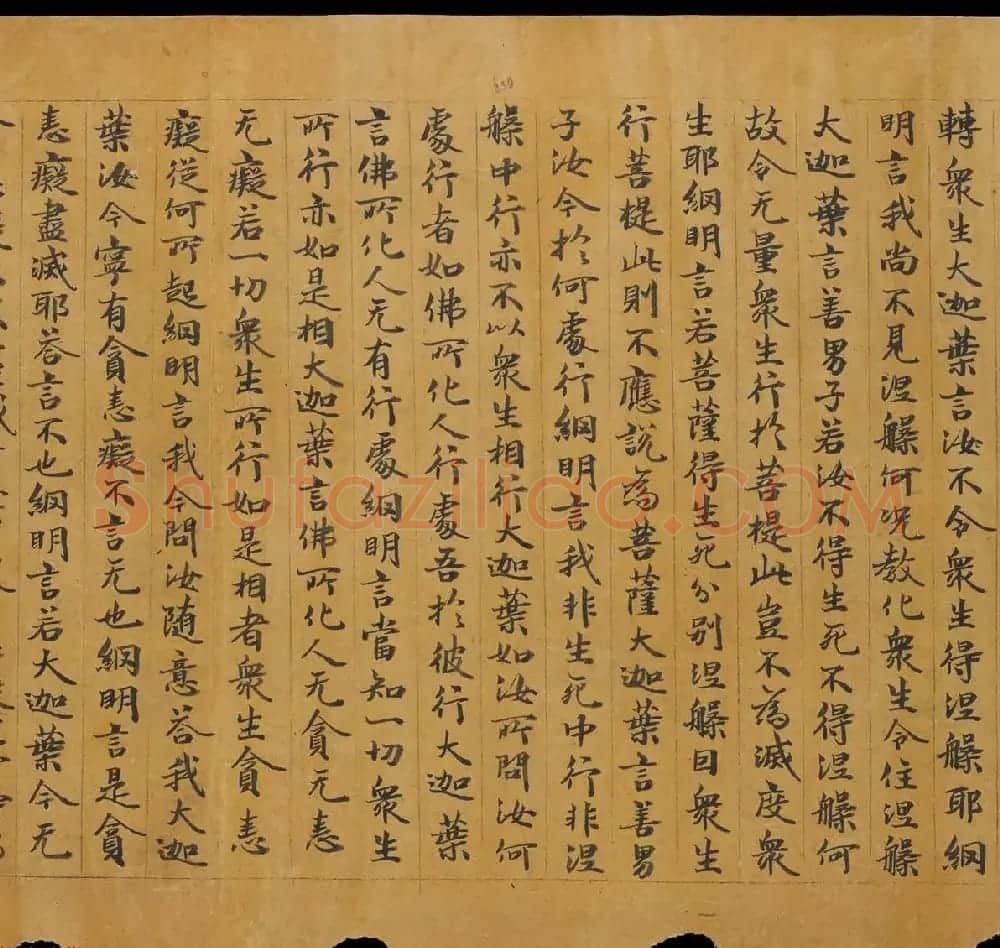 轉眾生大迦葉言汝不令眾生得涅槃耶網
明言我尚不見涅槃何況教化眾生令住涅槃
大迦葉言善男子若汝不得生死不得涅槃何
故令无量眾生行於菩提此豈不為滅度眾
生耶網明言若菩薩得生死分別涅槃因眾生
行菩提此則不應說為菩薩大迦葉言善男
子汝今於何處行網明言我非生死中行非涅
槃中行亦不以眾生相行大迦葉如汝所問汝何
處行者如佛所化人行處吾於彼行大迦葉
言佛所化人无有行處網明言當知一切眾生
所行亦如是相大迦葉言佛所化人无貪无恚
无癡若一切眾生所行如是相者眾生貪恚
癡從何所起網明言我今問汝隨意答我大迦
葉汝今寧有貪恚癡不言无也網明言是貪
恚癡盡滅耶答言不也網明言若大迦葉今无
230
Shufaziliao.COM